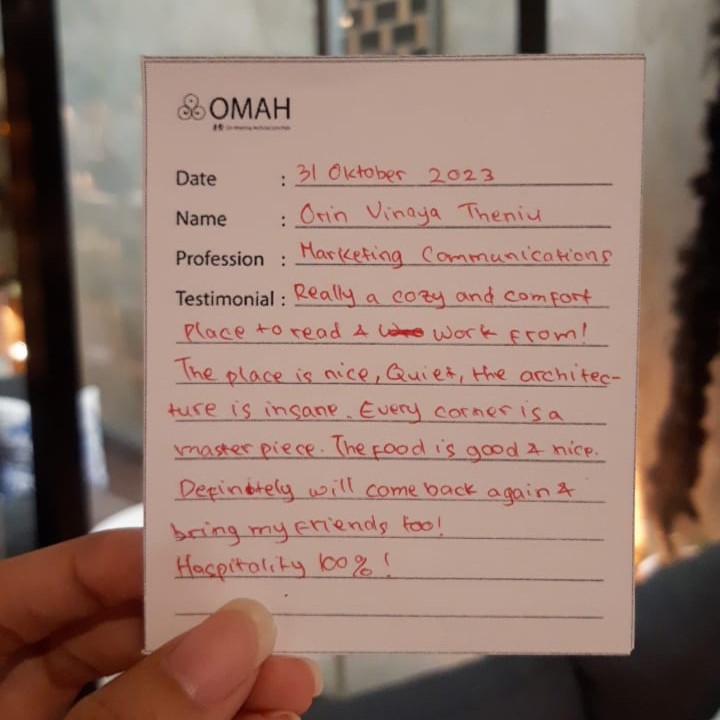 OMAH
Date : 31 Oktober 2023
Name : Orin Vinaya Theniu
Profession : Marketing Communications
Testimonial : Really a cozy and comfort
place to read & work from!
The place is nice, Quiet, the architec-
ture is insane. Every corner is a
masterpiece. The food is good & nice.
Definitely will come back again &
bring my friends too!
Hospitality 100%!